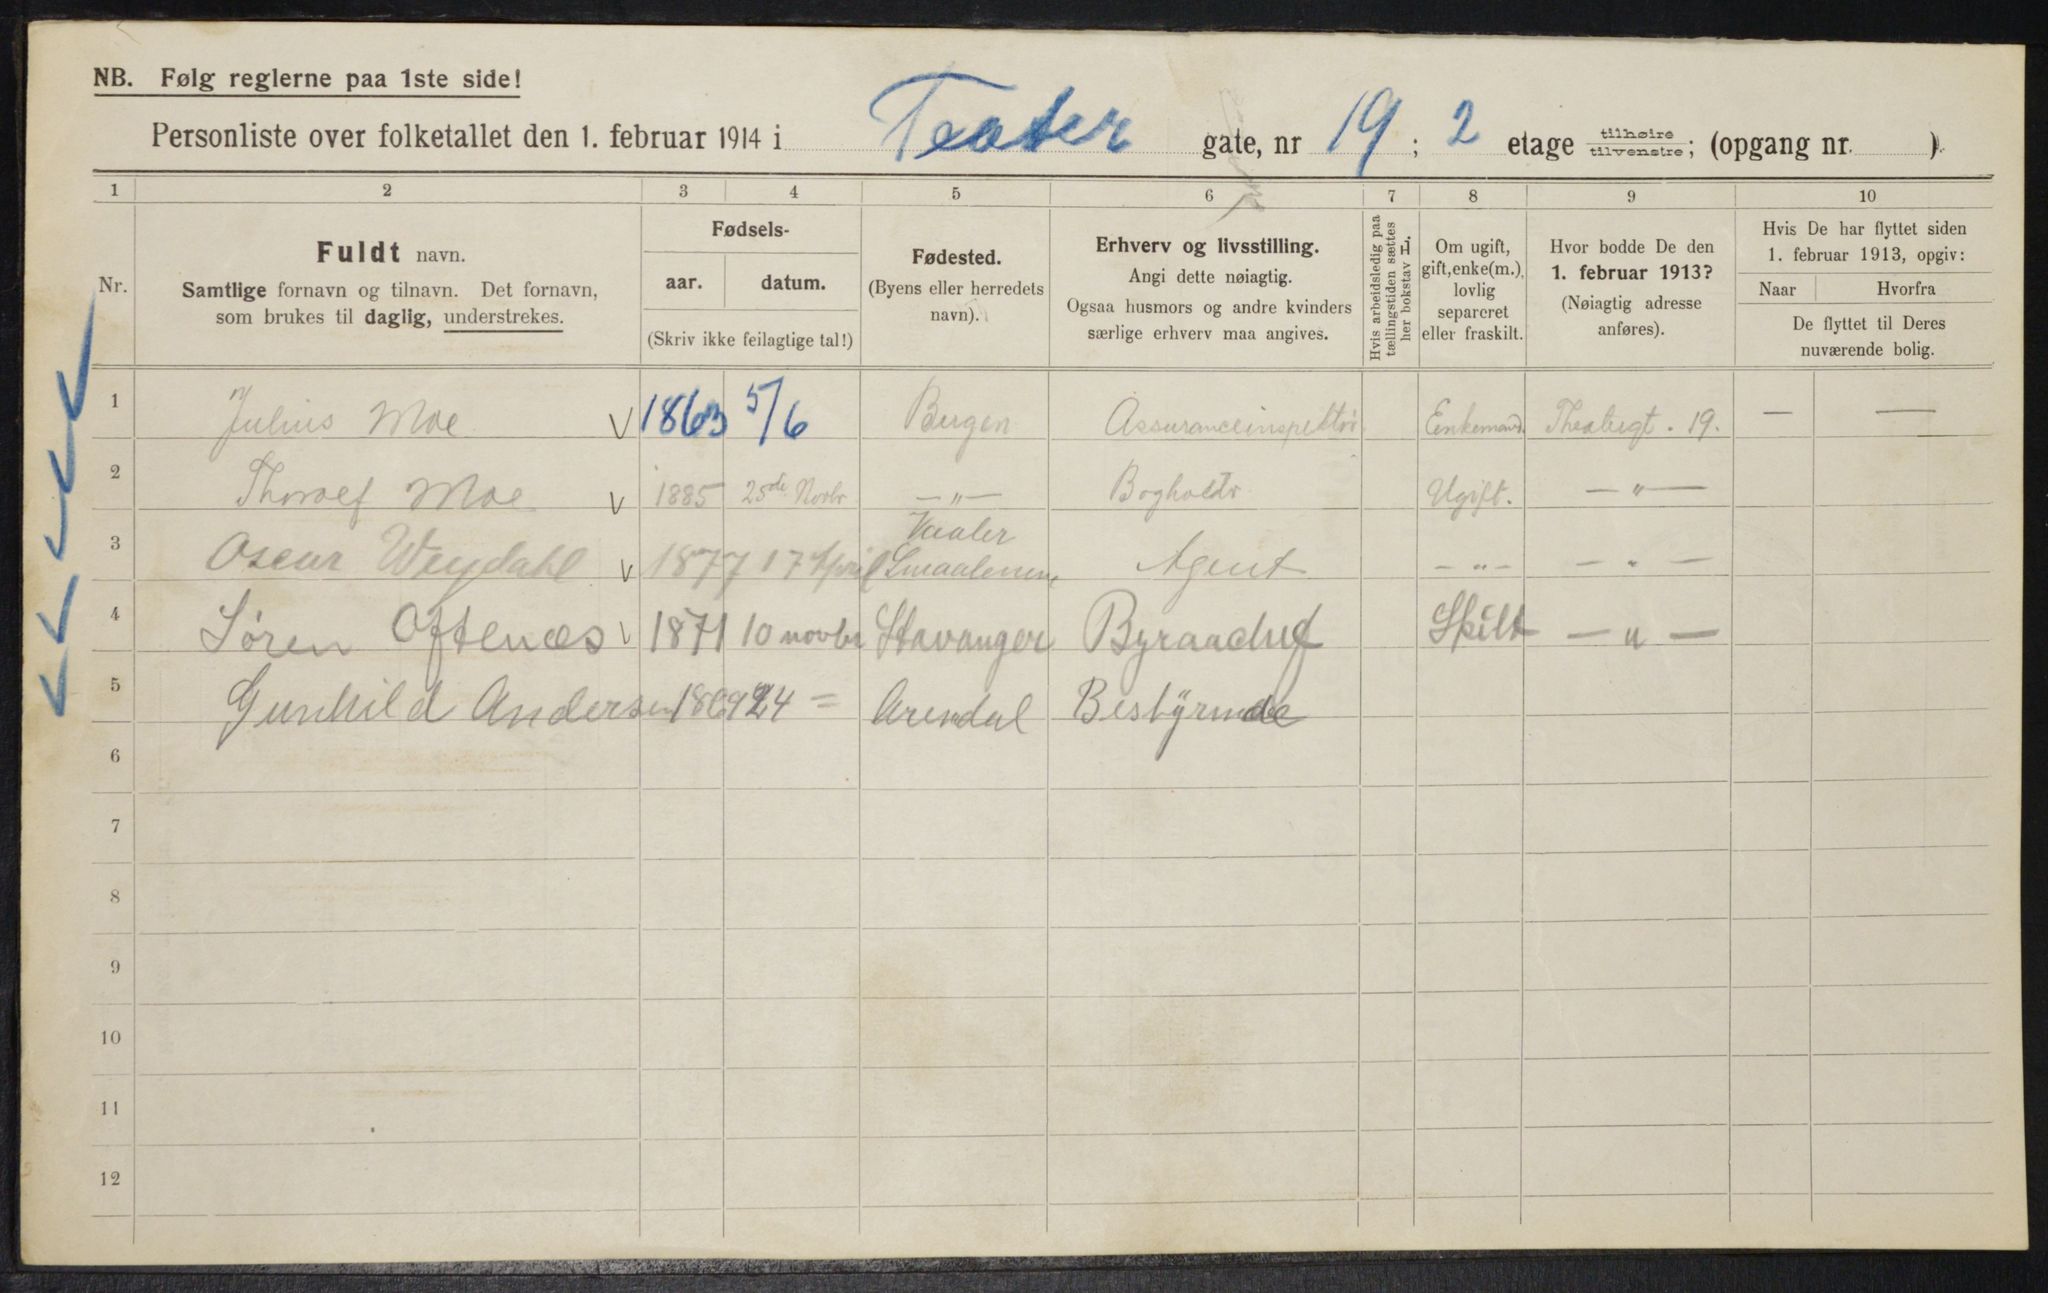 NB. Følg reglerne paa 1ste side!
Personliste over folketallet den 1. februar 1914 i Teater gate, nr 19; 2 etage tilhøire tilvenstre; (opgang nr. ).
1 2 3 4 5 6 7 8 9 10
Nr.
Fuldt navn.
Samtlige fornavn og tilnavn. Det fornavn,
som brukes til daglig, understrekes.
Fødsels-
aar. datum.
(Skriv ikke feilagtige tal!)
Fødested.
(Byens eller herredets
navn).
Erhverv og livsstilling.
Angi dette nøiagtig.
Ogsaa husmors og andre kvinders
særlige erhverv maa angives.
Hvis arbeidsledig paa
tællingstiden sættes
her bokstav L.
Om ugift,
gift, enke(m.),
lovlig
separeret
eller fraskilt.
Hvor bodde De den
1. februar 1913?
(Nøiagtig adresse
anføres).
Hvis De har flyttet siden
1. februar 1913, opgiv:
Naar Hvorfra
De flyttet til Deres
nuværende bolig.
1 Julius Moe 1863 5/6 Bergen Assuranceinspektør Enkemand. Theatergt. 19. — —
2 Thorolf Moe 1885 25de Novbr —"— Bogholdr Ugift. —"—
3 Oscar Weydahl 1877 17 April Vaaler Smaalenene Agent —"— —"—
4 Sören Oftenæs 1871 10 novbr Stavanger Byraachef Skilt —"—
5 Gunhild Andersen 1869 24 = Arendal Bestyrinde
6
7
8
9
10
11
12